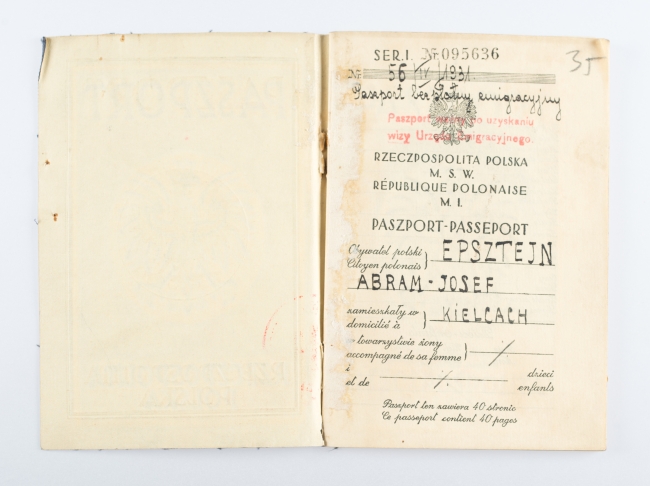 SER. I. № 095636
35
№ 56/IV/1931.
Paszport bezpłatny emigracyjny
Paszport ważny do uzyskaniu
wizy Urzędu Emigracyjnego.
RZECZPOSPOLITA POLSKA
M. S. W.
RÉPUBLIQUE POLONAISE
M. I.
PASZPORT-PASSEPORT
Obywatel polski
Citoyen polonais } EPSZTEJN
ABRAM-JOSEF
zamieszkały w
domicilié à } KIELCACH
w towarzystwie żony
accompagné de sa femme } ./.
i ./. dzieci
et de enfants
Paszport ten zawiera 40 stronic
Ce passeport contient 40 pages